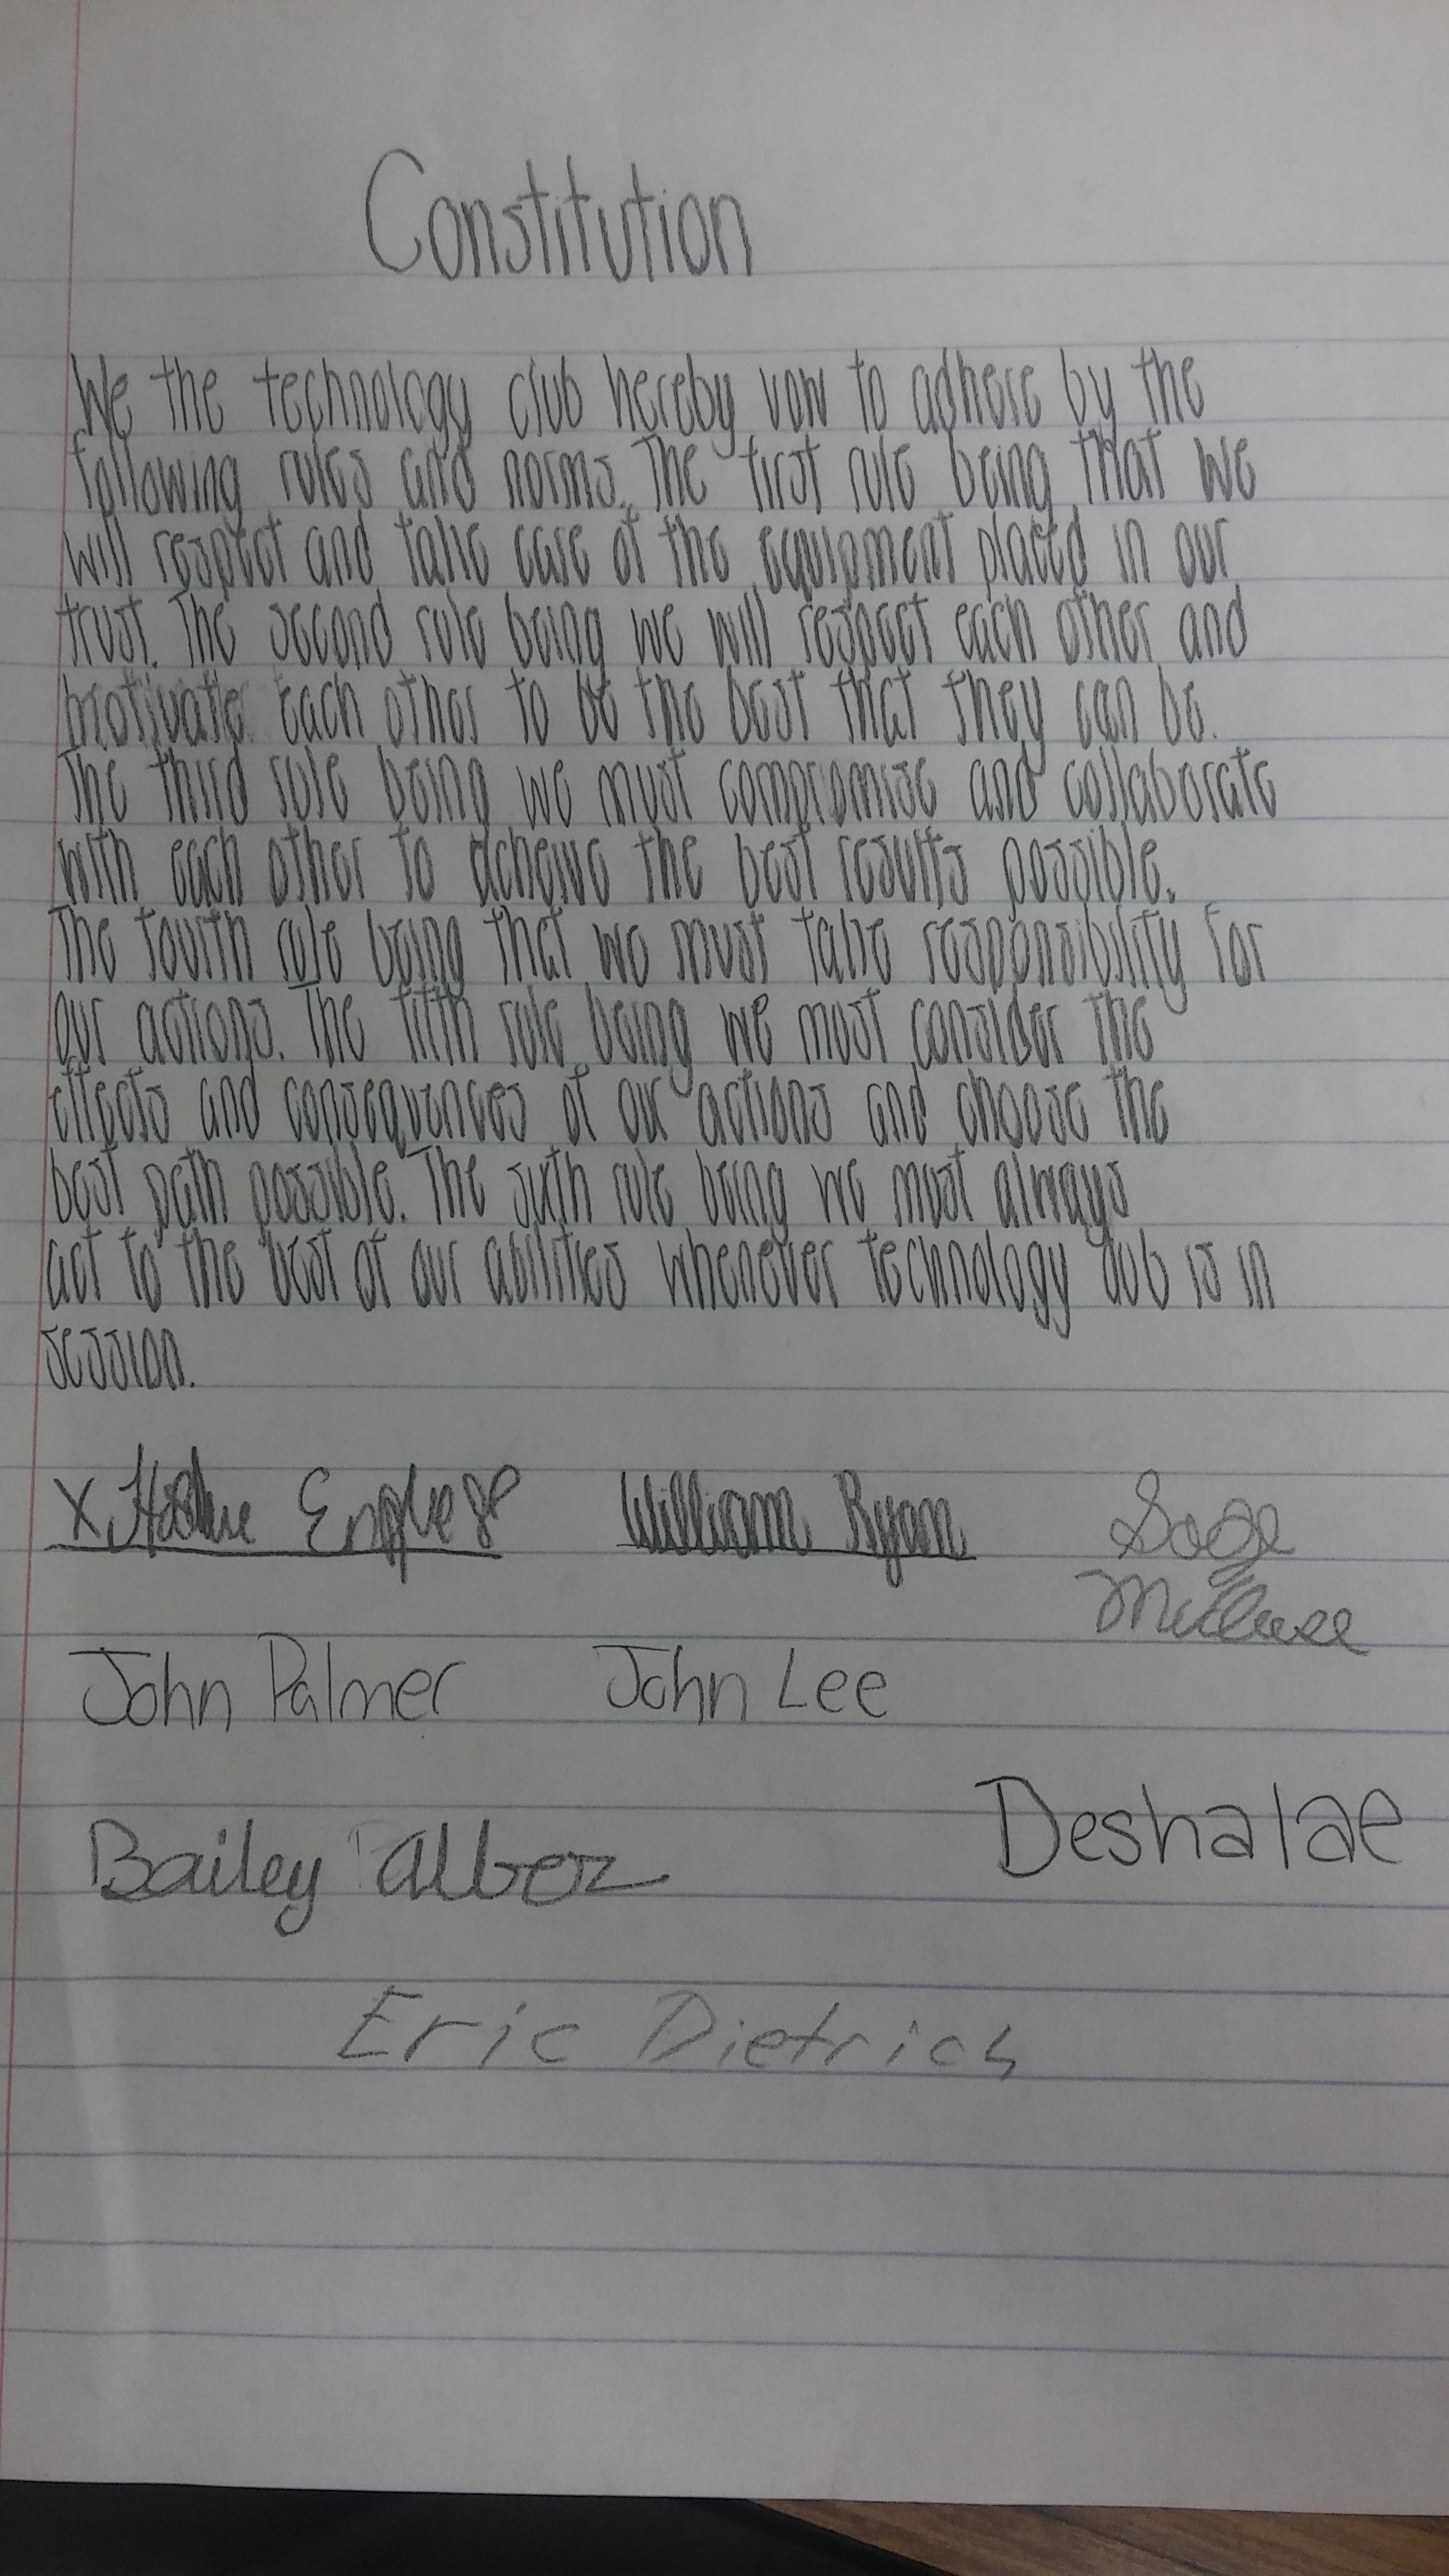 Constitution
We the technology club hereby vow to adhere by the
following rules and norms. The first rule being that we
will respect and take care of the equipment placed in our
trust. The second rule being we will respect each other and
motivate each other to be the best that they can be.
The third rule being we must compromise and collaborate
with each other to acheive the best results possible.
The fourth rule being that we must take responsibility for
our actions. The fifth rule being we must consider the
effects and consequences of our actions and choose the
best path possible. The sixth rule being we must always
act to the best of our abilities whenever technology club is in
session.
X William Ryan Sage
John Palmer John Lee
Bailey Deshalae
Eric Dietrich